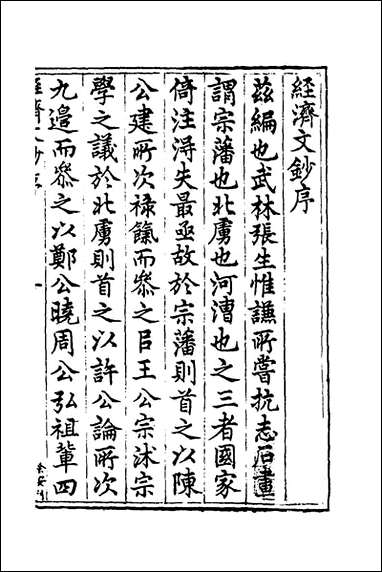 經濟文鈔序
茲編也武林張生惟讌所嘗抗志石畫
謂宗藩也北虜也河漕也之三者國家
倚注得失最亟故於宗藩則首之以陳
公建所次祿餼而叅之㠯王公宗沭宗
學之議於北虜則首之以許公論所次
九邉而叅之以鄭公曉周公弘祖輩四
經濟文鈔序
一